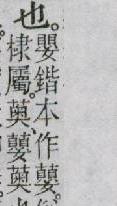 也。
嬰鍇本作蘡。
棣屬。薁、蘡薁